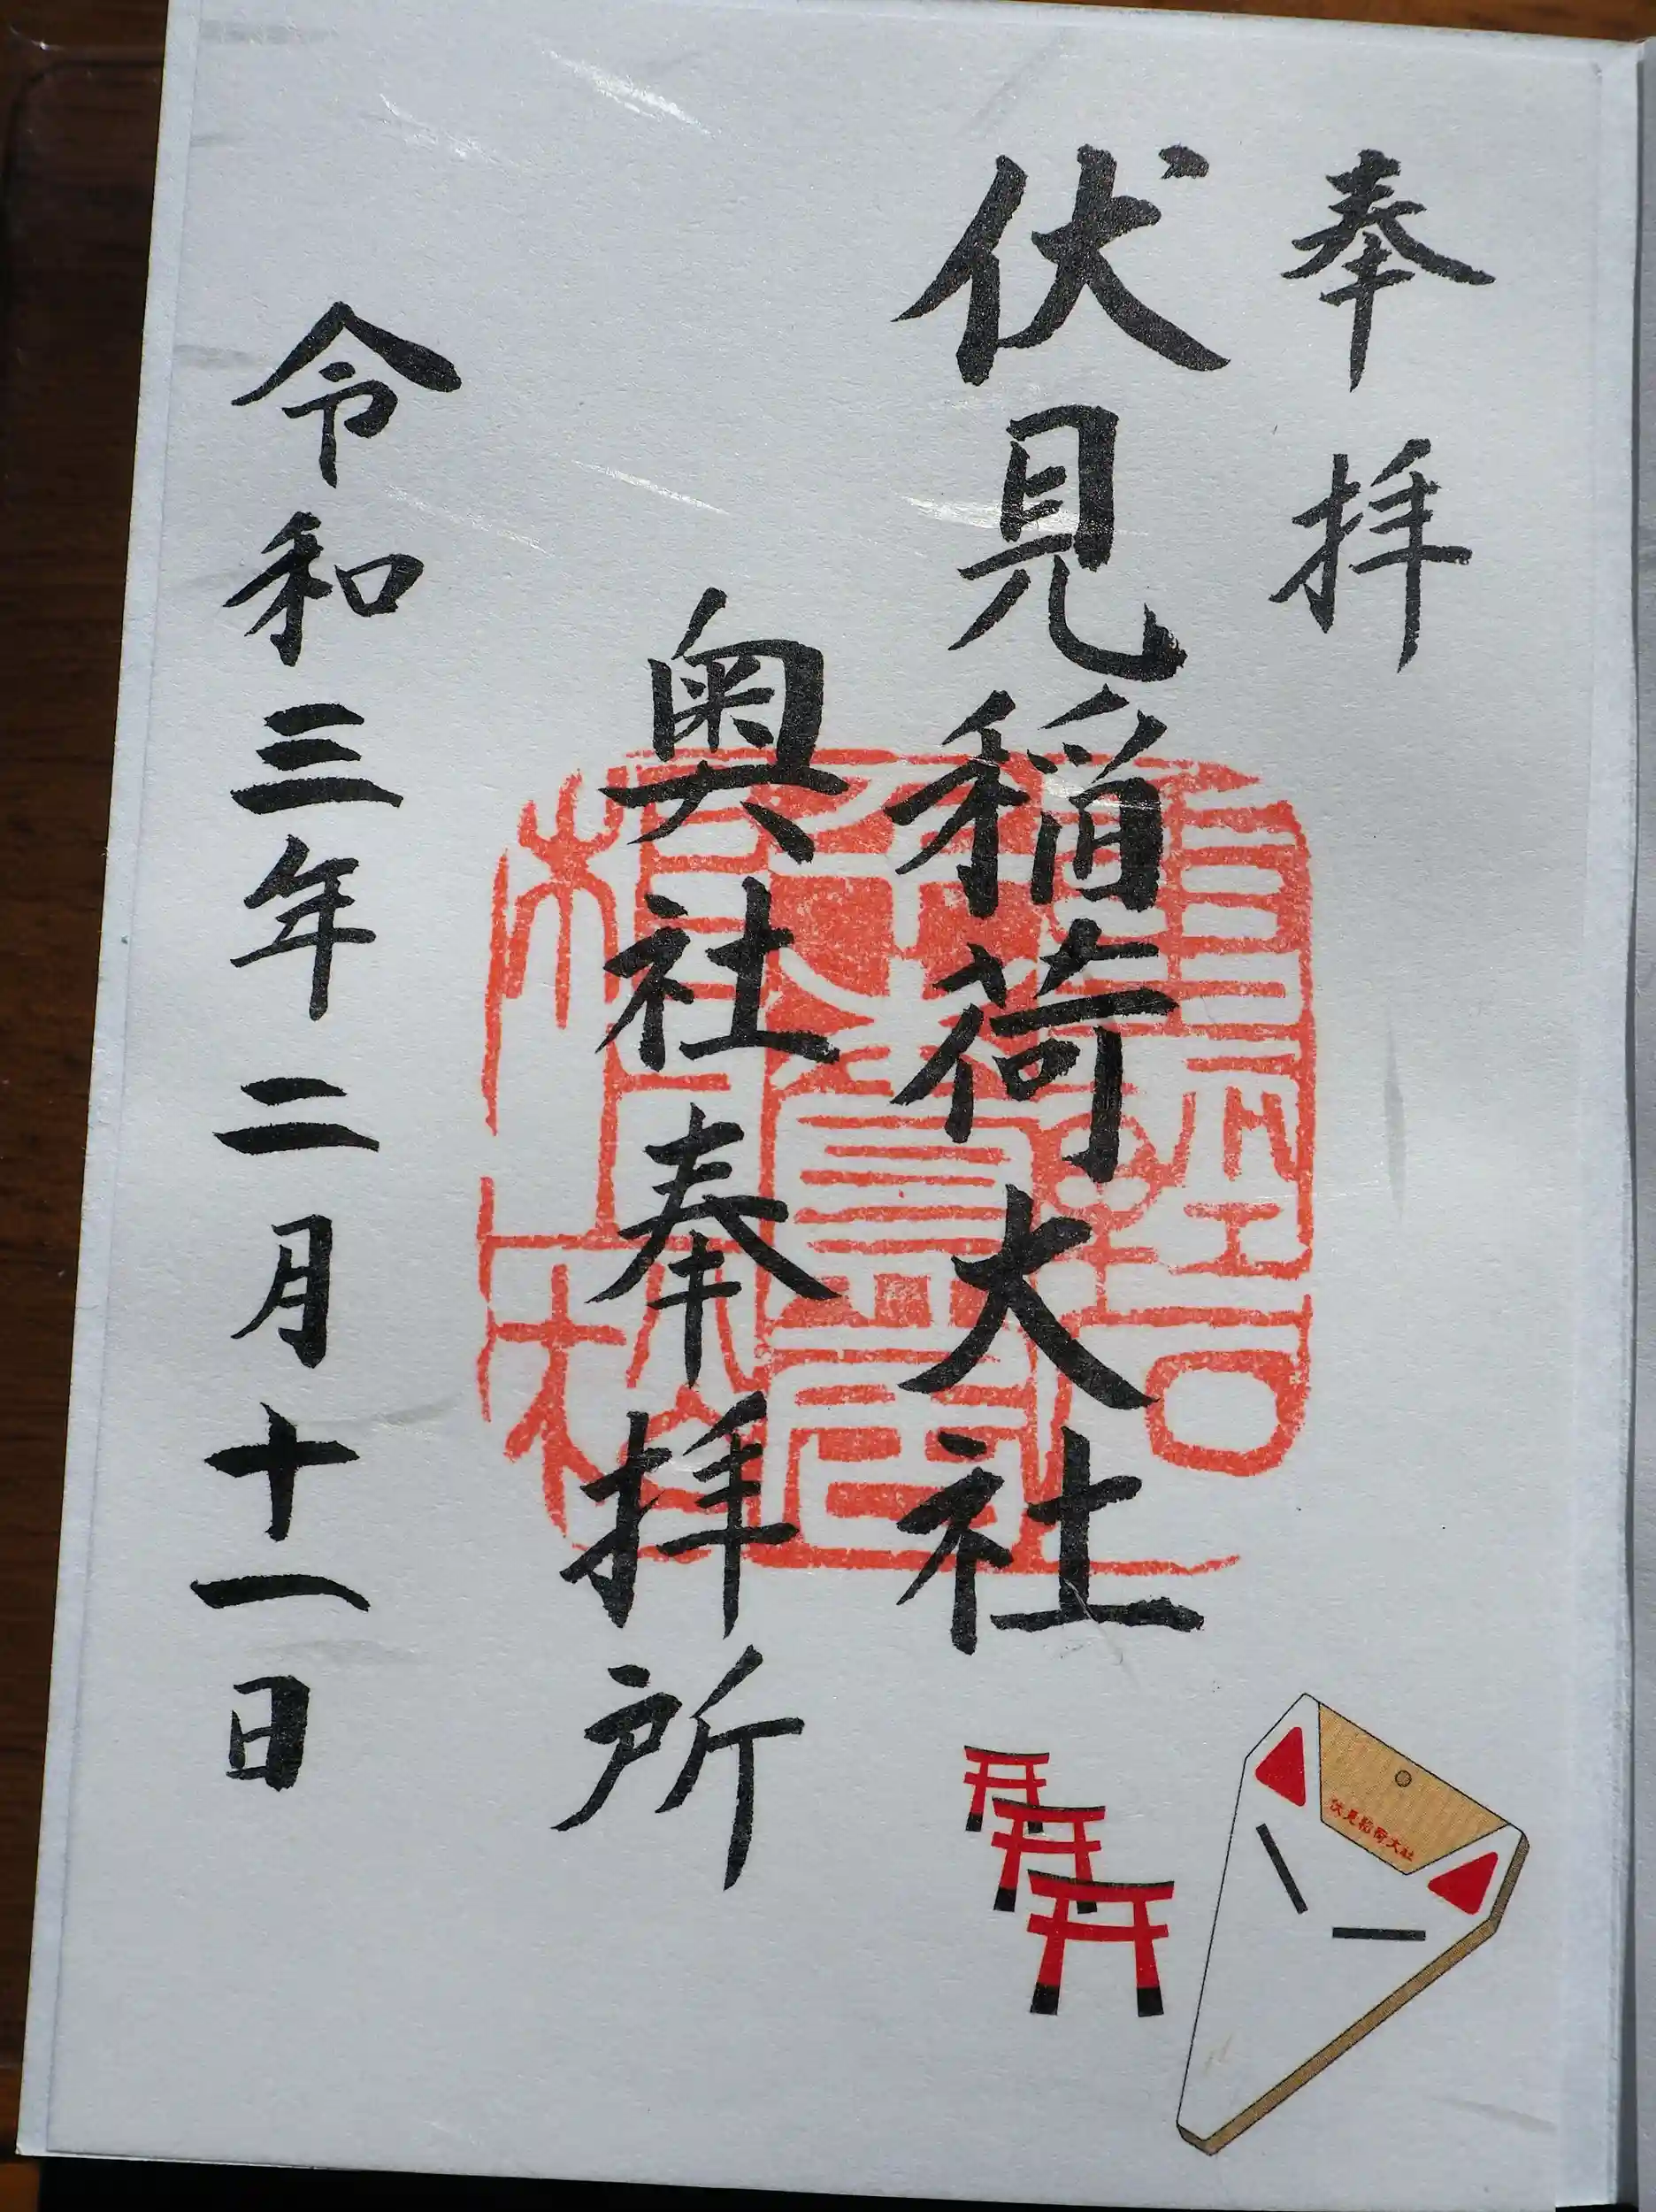 奉拝
伏見稲荷大社
奥社奉拝所
令和三年二月十一日
伏見稲荷大社